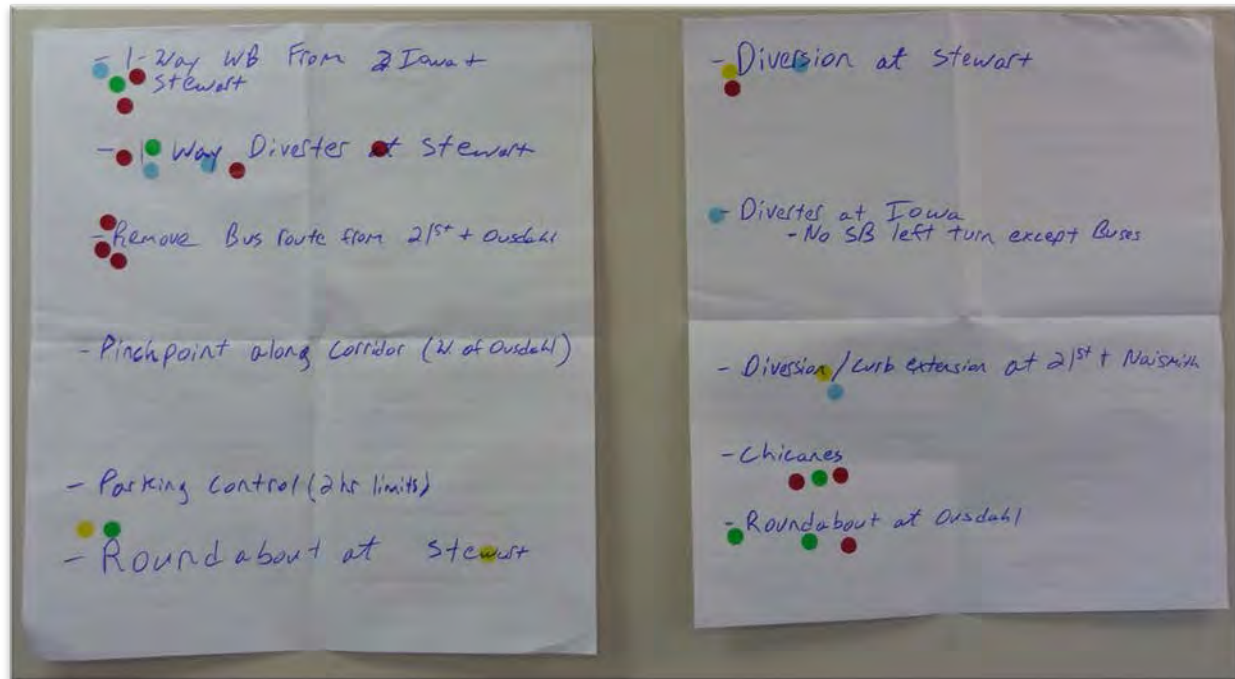 - 1-Way WB From Iowa +
Stewart
- 1 Way Diverter at Stewart
- Remove Bus route from 21st + Ousdahl
- Pinchpoint along Corridor (W. of Ousdahl)
- Parking Control (2 hr limits)
- Roundabout at Stewart
- Diversion at Stewart
- Diverter at Iowa
- No SB left turn except Buses
- Diversion/curb extension at 21st + Naismith
- Chicanes
- Roundabout at Ousdahl